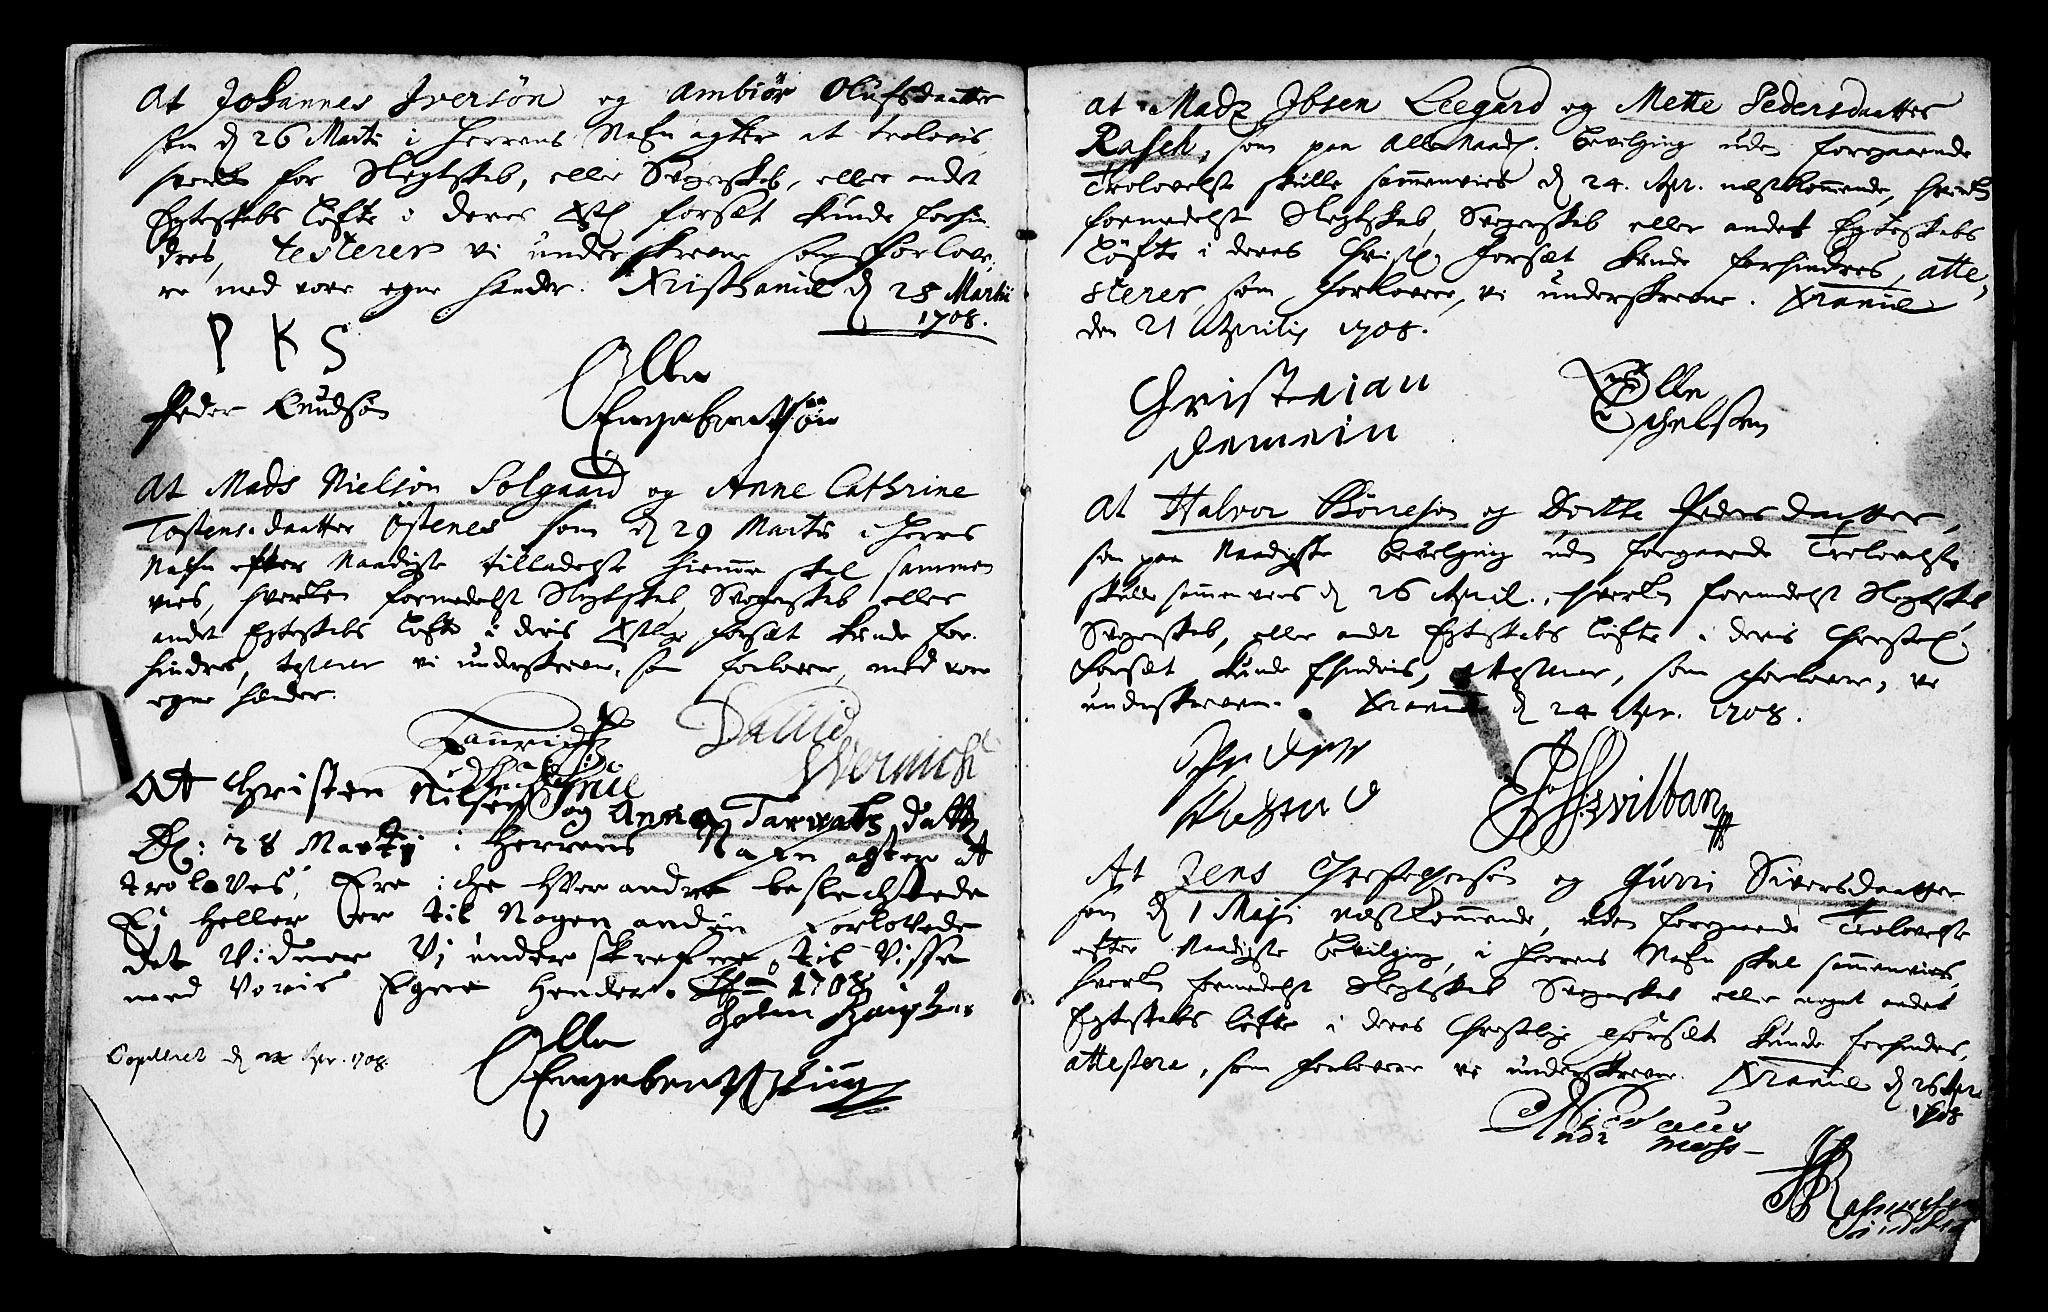 At Johannes Iversøn og Ambiør Olufsdaatter
som d 26 Marti i Herrens Nafn agter at trolovis,
hverken for Slegtskab, eller Svogerskab, eller andet
Egteskabs Løfte i deres forsæt kunde forhin
dres, testerer vi underskrevne som forlove,
re med vore egne hænder. Kristianiæ d 23 Martii
1708.
P K S
Peder Knudsøn
Olle
Engebretsøn
At Mads Nielsøn Solgaard og Anne Cathrine
Tostens-daatter Östenes som d 29 Martii i Herrens
Nafn efter Naadigste tilladelse hiemme skal sammen
vies, hverken formedelst Slegtskab, Svogerskab eller
andet Egteskabs Løfte i deris forsæt kunde for-
hindres, testerer vi underskrevne, som forlovere, med vore
egne hænder.
David
Wernich
At Christen Nilsen og Anna Tarvalds datter
D: 28 Martij i Herrens Nafn agter at
troloves, Ere iche hver andre beslechtede
Ej heller er til Nogen anden forlovede
Det Vidner Vi under skrefne til Visse
med Voris Egne Hender. 1708
Olle
Copuleret d Apr. 1708
At Madz Ibsen Leegard og Mette Pedersdaatter
Rasch, som paa Allernaad. bevilging uden forgaaende
Trolovelse skulle sammenvies d 24. Apr. næstkommende, hverken
formedelst Slegtskab, Svogerskab eller andet Egteskabs
Løfte i deres Christ. forsæt kunde forhindres, atte,
sterer, som forlovere, vi underskrevne. Xraniæ
den 21 Aprilis 1708.
Christian
Olle
At Halvor Børresøn og Dorthe Pedersdaatter,
som paa Naadigste bevilging uden forgaaende Trolovelse
skulle sammenvies d 26 April., hverken formedelst Slegtskab
Svogerskab, eller andet Egteskabs Løfte i deris Christel.
forsæt kunde hindris, Attesterer, som forlovere, vi
underskrevne. Xraniæ d 24 Apr. 1708.
At Jens Christophersøn og Gurri Siversdaatter
som d 1 Maji næstkommende, uden forgaaende Trolovelse
efter Naadigste bevilging, i Herrens Nafn skal sammenvies,
hverken formedelst Slegtskab Svogerskab eller noget andet
Egteskabs løfte i deres Christelige forsæt kunde forhindres,
attestere, som forlovere vi underskrevne. Xraniæ d 26 Apr.
1708
Nicolaus